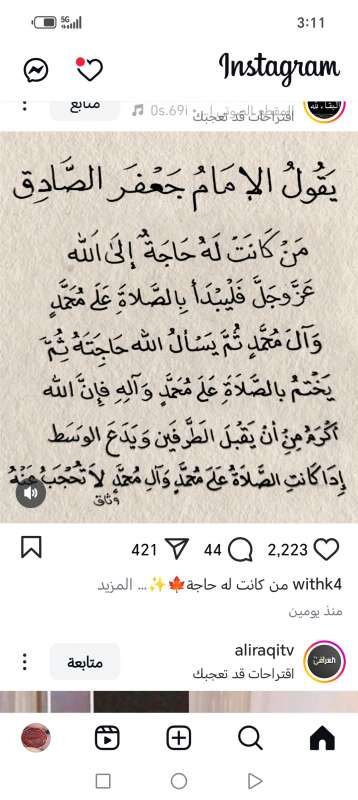 3:11
5G
Instagram
متابع
المقطع الصوتي
0s.69i
اقتراحات قد تعجبك
يَقُولُ الإمَامُ جَعْفَرَ الصَّادِق
مَنْ كَانَتْ لَهُ حَاجَةٌ إِلَى اللّه
عَزَّوَجَلَّ فَليَبْدَأ بِالصَّلاةِ عَلَى مُحَمَّدٍ
وَآلَ مُحَمَّدٍ ثُمَّ يَسْألُ اللّه حَاجَتَهُ ثُمَّ
يَخْتمُ بالصَّلاَةِ عَلَى مُحَمَّدٍ وَآلِهِ فَإنَّ اللّه
أكْرَمُ مِنْ أنْ يَقْبَلَ الطَّرفَين وَيَدَعَ الوَسَط
إذَا كَانَتِ الصَّلاَةُ عَلَى مُحَمَّدٍ وَآلِ مُحمَّدٍ لاَ تُحْجَبُ عَنْهُ
وثاق
2,223 44 421
withk4 من كانت له حاجة🍁✨... المزيد
منذ يومين
العراقي
aliraqitv
اقتراحات قد تعجبك
متابعة